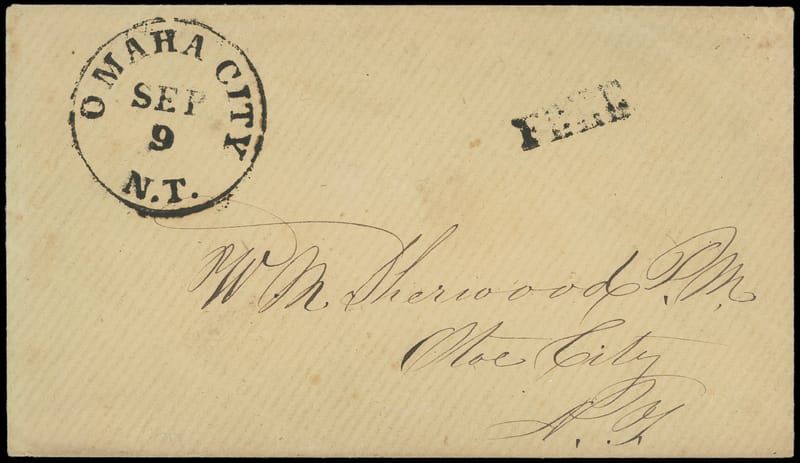 OMAHA CITY
SEP
9
N.T.
FREE
W M Sherwood P.M.
Otoe City
N.T.